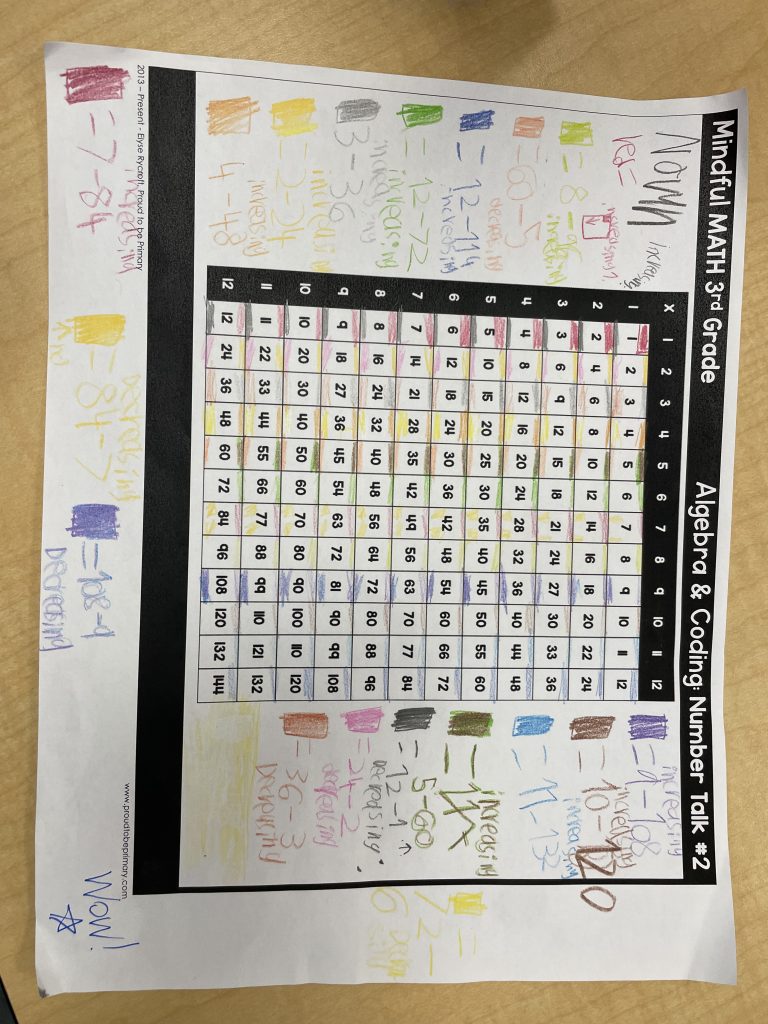 Mindful MATH 3rd Grade Algebra & Coding: Number Talk #2
Nowh
increasing
red=
increasing
= 8-96
increasing
=60-5
decreasing
= 12-144
increasing
= 12-72
increasing
3-36
increasing
=2-24
increasing
4-48
increasing
= 7-84
increasing
X 1 2 3 4 5 6 7 8 9 10 11 12
1 1 2 3 4 5 6 7 8 9 10 11 12
2 2 4 6 8 10 12 14 16 18 20 22 24
3 3 6 9 12 15 18 21 24 27 30 33 36
4 4 8 12 16 20 24 28 32 36 40 44 48
5 5 10 15 20 25 30 35 40 45 50 55 60
6 6 12 18 24 30 36 42 48 54 60 66 72
7 7 14 21 28 35 42 49 56 63 70 77 84
8 8 16 24 32 40 48 56 64 72 80 88 96
9 9 18 27 36 45 54 63 72 81 90 99 108
10 10 20 30 40 50 60 70 80 90 100 110 120
11 11 22 33 44 55 66 77 88 99 110 121 132
12 12 24 36 48 60 72 84 96 108 120 132 144
= 9-108
increasing
= 10-120
increasing
= 11-132
increasing
=
increasing
5-60
= 12-1
Decreasing
=24-2
decreasing
= 36-3
Decreasing
=
72-
6
= 84-7
Decreasing
=108-9
Decreasing
Wow!
2013 – Present - Elyse Rycroft, Proud to be Primary
www.proudtobeprimary.com